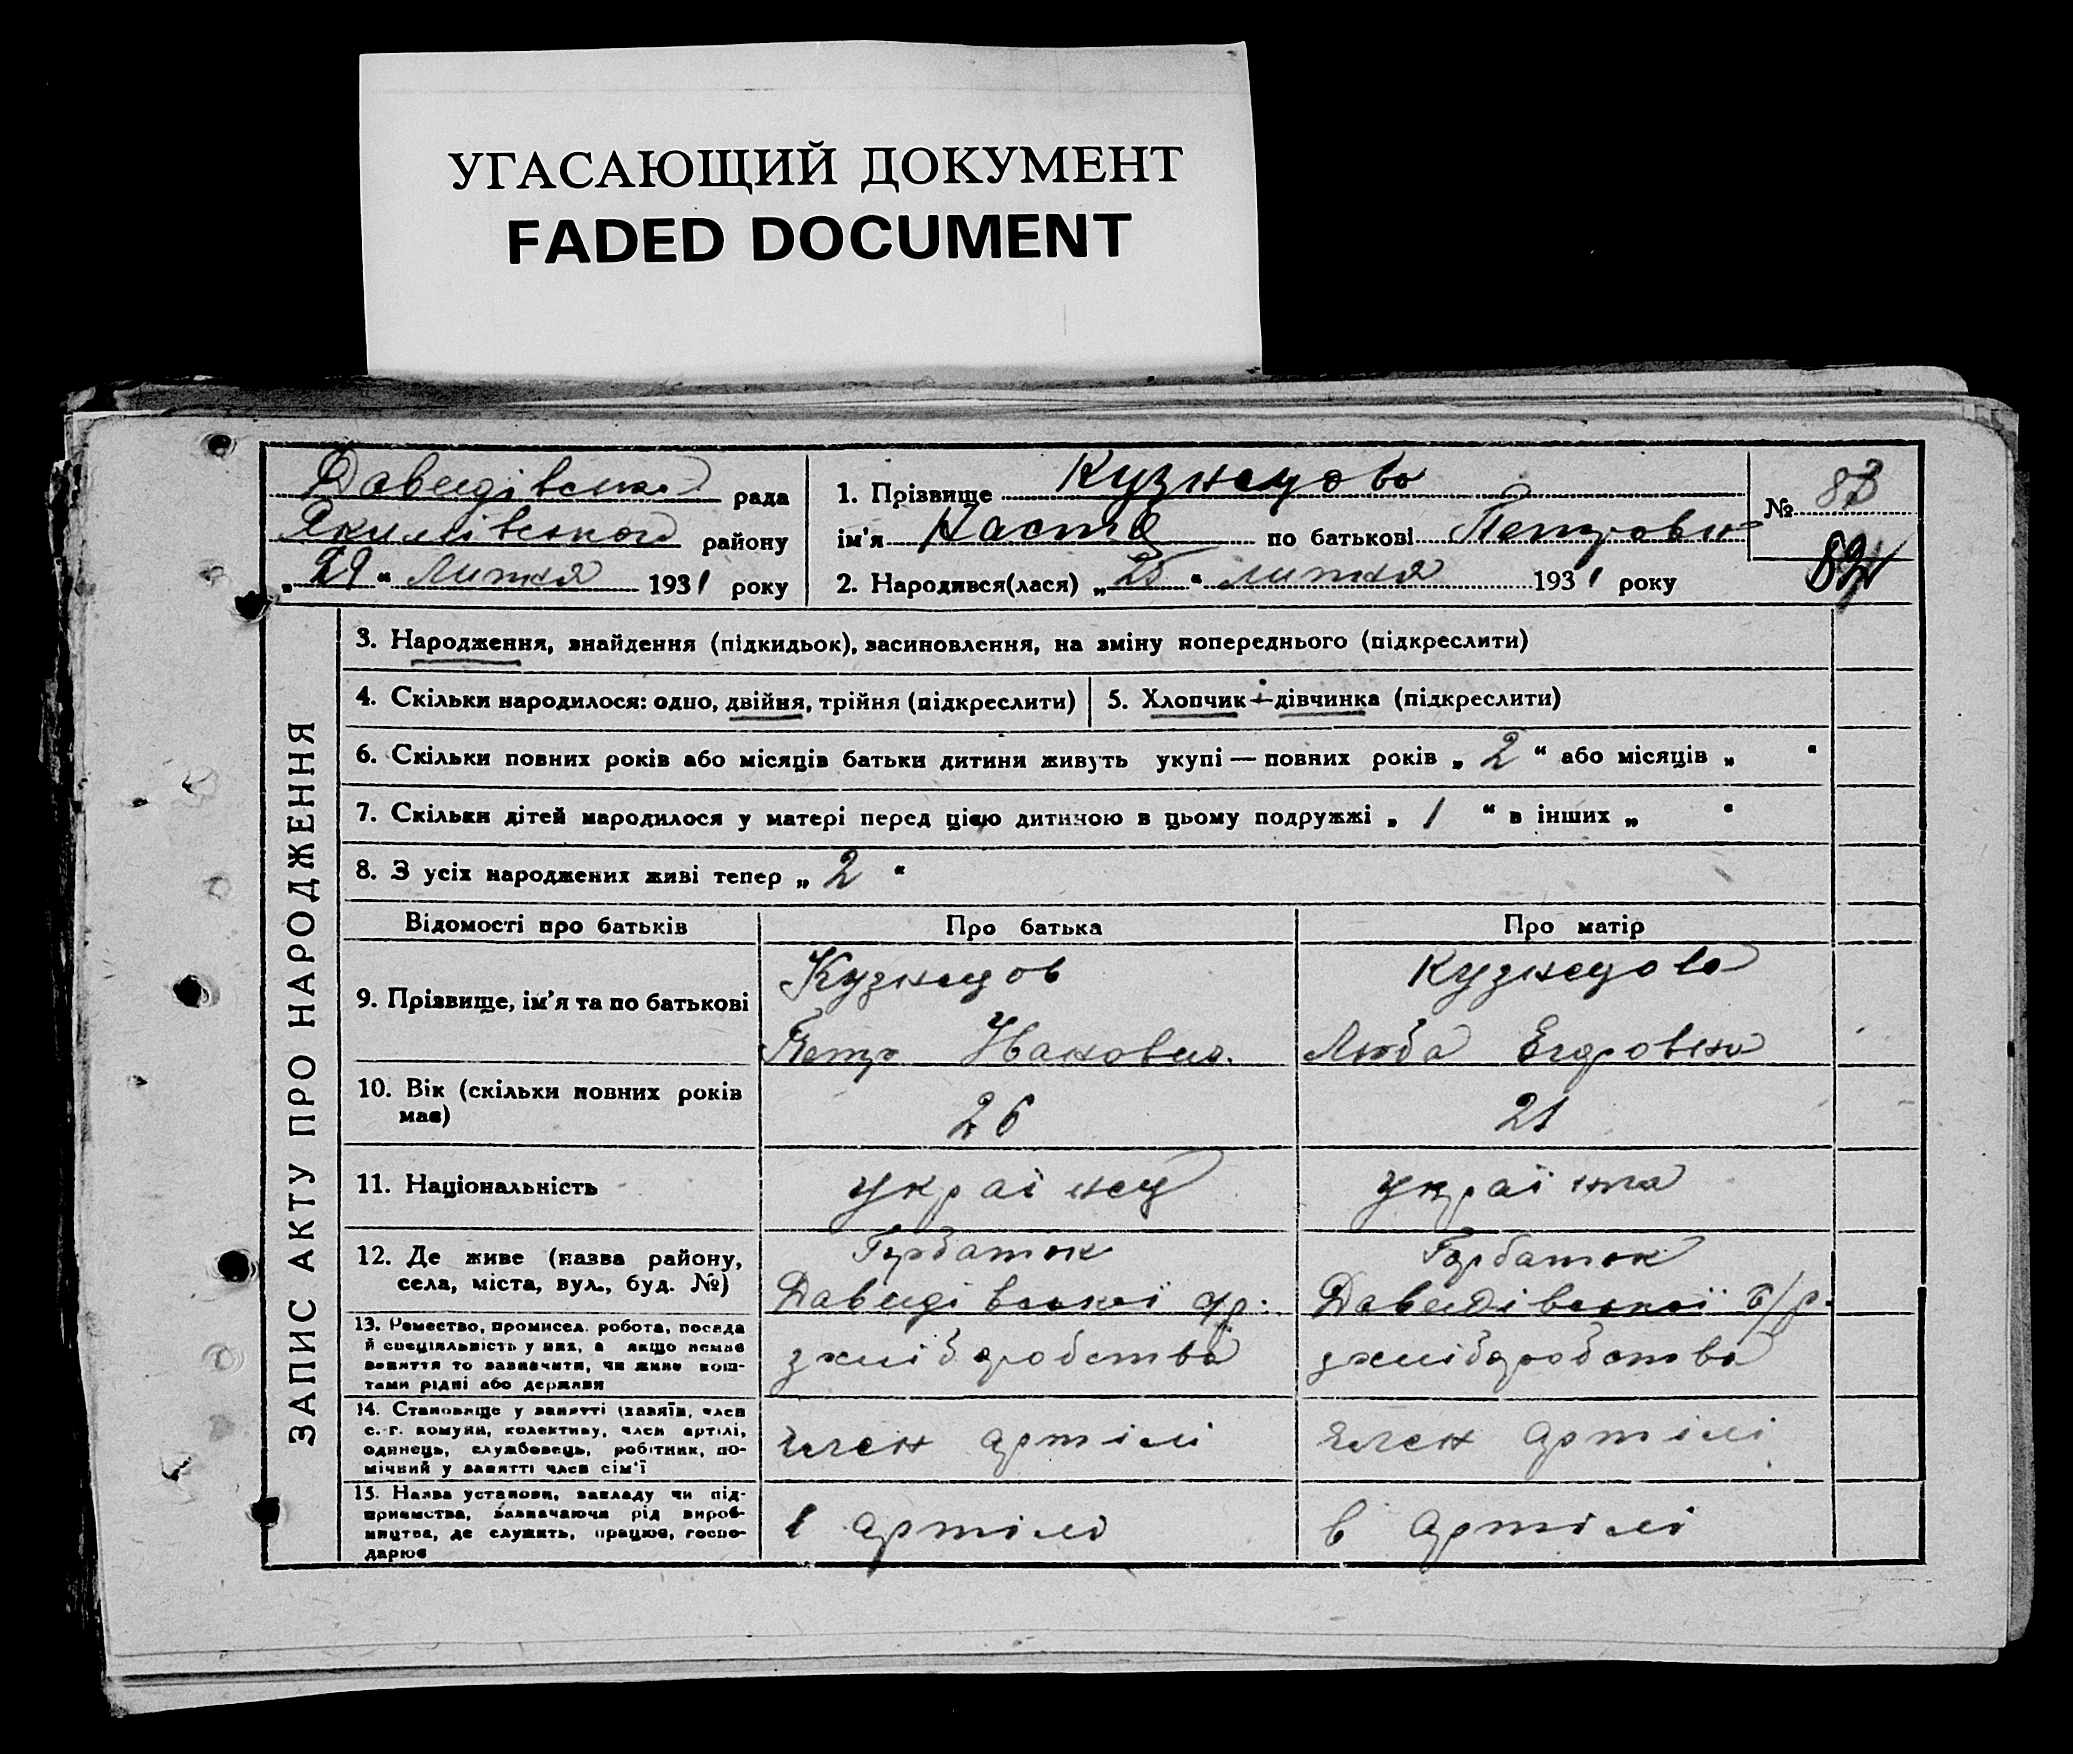 УГАСАЮЩИЙ ДОКУМЕНТ
FADED DOCUMENT
Давидівська рада
Якимівського району
„29“ Липня 1931 року
1. Прізвище Кузнецова
ім'я Настя по батькові Петровн
2. Народився(лася) „25“ липня 1931 року
№ 83
ЗАПИС АКТУ ПРО НАРОДЖЕННЯ
3. Народження, знайдення (підкидьок), засиновлення, на зміну попереднього (підкреслити)
4. Скільки народилося: одно, двійня, трійня (підкреслити)
5. Хлопчик і дівчинка (підкреслити)
6. Скільки повних років або місяців батьки дитини живуть укупі — повних років „2“ або місяців „ “
7. Скільки дітей народилося у матері перед цією дитиною в цьому подружжі „1“ в інших „ “
8. З усіх народжених живі тепер „2“
Відомості про батьків Про батька Про матір
9. Прізвище, ім'я та по батькові
Кузнецов
Петро Иванович.
Кузнецова
Люба Егоровна
10. Вік (скільки повних років
має)
26
21
11. Національність
украінец
украінка
12. Де живе (назва району,
села, міста, вул., буд. №)
Горбаток
Давидівської
Горбаток
Давидівської с/р.
13. Ремество, промисел, робота, посада
й спеціяльність у них, а якщо немає
заняття то зазначити, чи живе кош-
тами рідні або держави
хліборобства
хліборобства
14. Становище у занятті (хазяїн, член
с.-г. комуни, колективу, член артілі,
одинець, службовець, робітник, по-
мічний у занятті член сім'ї
член артілі
член артілі
15. Назва установи, закладу чи під-
приємства, зазначаючи рід вироб-
ництва, де служить, працює, госпо-
дарює
в артілі
в артілі